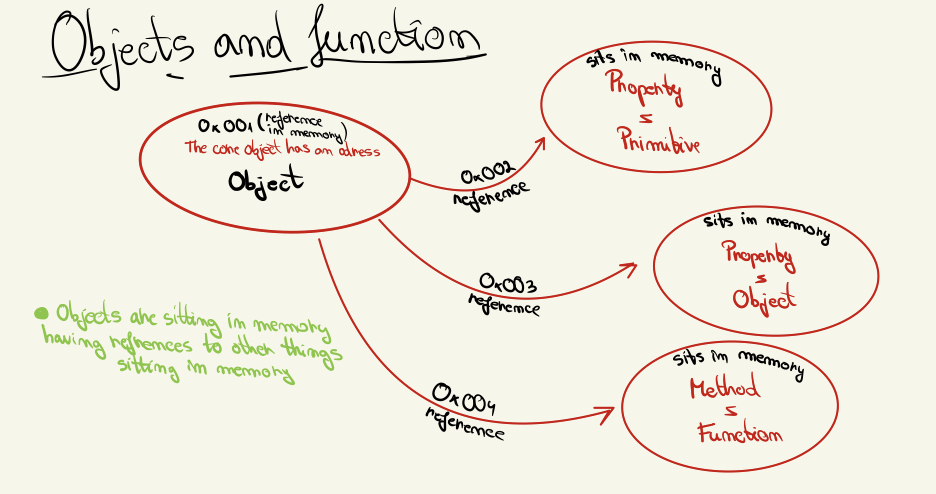 Objects and function
0x001 (reference
in memory)
The core object has an adress
Object
0x002
reference
sits in memory
Property
s
Primitive
0x003
reference
sits in memory
Property
s
Object
0x004
reference
sits in memory
Method
s
Function
• Objects are sitting in memory
having refrences to other things
sitting in memory